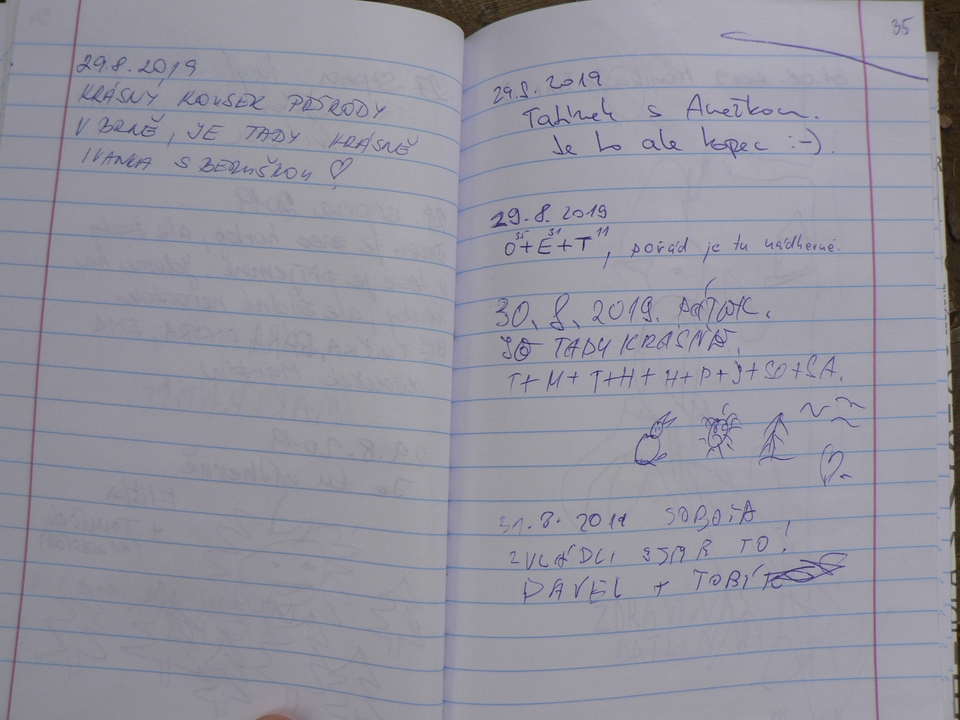 29.8.2019
KRÁSNÝ KOUSEK PŘÍRODY
V BRNĚ, JE TADY KRÁSNĚ
IVANKA S BERUŠKOU ♡
35
29.8. 2019
Tatínek s Anežkou.
Je to ale kopec :-).
29.8. 2019
O³⁵+E³¹+T¹¹, pořád je tu nádherně.
30.8.2019. PÁTEK.
JE TADY KRÁSNĚ.
T+M+T+H+H+P+J+SO+SA.
31.8. 2019 SOBOTA
ZVLÁDLI JSME TO!
PAVEL + TOBÍK